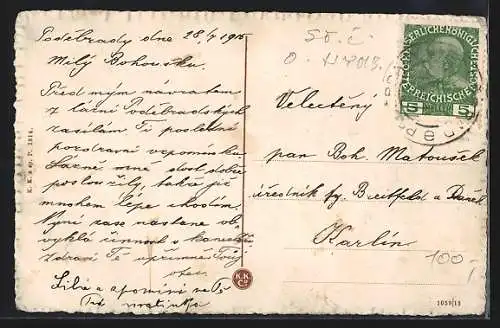 Poděbrady dne 28/7 1915
Milý Bohoušku.
Před mým návratem
z lázní Poděbradských
zasílám Ti poslední
pozdravné vzpomínku
Lázně mně dost dobře
posloužily, takže již
mnohem lépe chodím.
Nyní zase nastane ob-
vyklá činnost v kanceláři
zdraví Tě upřímně Tvůj
otec.
Líbá a vzpomíná na Tě
Tvá matinka
K. K. & Cⁱᵉ P. 1914.
K.K.
& Co
KAISERLICHE KÖNIGLICHE
ÖSTERREICHISCHE POST
5 HELLER 5
Velectěný
pan Boh. Matoušek
úředník fy. Breitfeld a Daněk
Karlín
100,-
1059/15